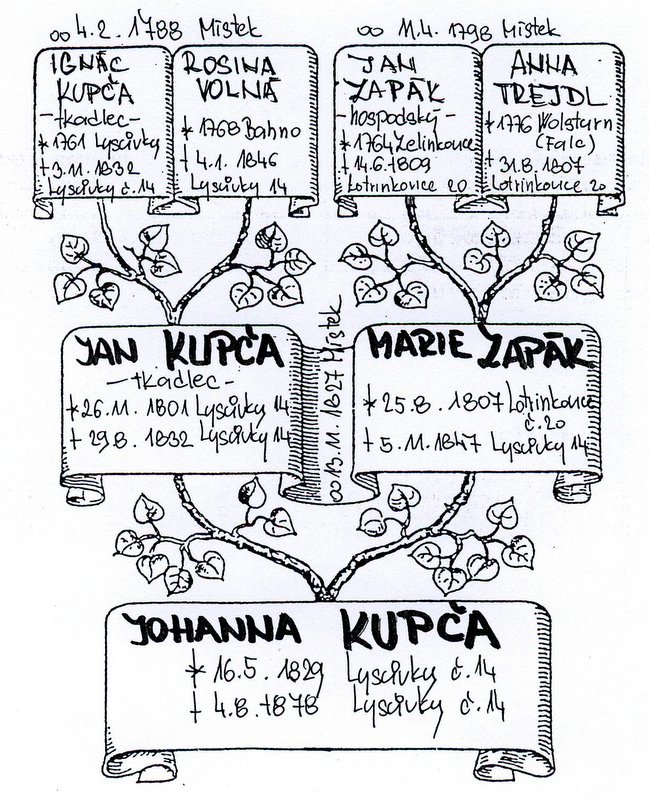 ∞ 4.2.1788 Místek
∞ 11.4.1798 Místek
IGNÁC
KUPČA
-tkadlec-
* 1761 Lyscůvky
† 3.11.1832
Lyscůvky č.14
ROSINA
VOLNÁ
* 1768 Bahno
† 4.1.1846
Lyscůvky 14
JAN
ZAPÁK
-hospodský-
* 1764 Zelinkovice
† 14.6.1809
Lotrinkovice 20
ANNA
TREJDL
* 1776 Wolsturn
(Falc)
† 31.8.1807
Lotrinkovice 20
JAN KUPČA
-tkadlec-
* 26.11.1801 Lyscůvky 14
† 29.8.1832 Lyscůvky 14
∞ 13.11.1827 Místek
MARIE ZAPÁK
* 25.8.1807 Lotrinkovice
č.20
† 5.11.1847 Lyscůvky 14
JOHANNA KUPČA
* 16.5.1829 Lyscůvky č.14
† 4.8.1878 Lyscůvky č.14